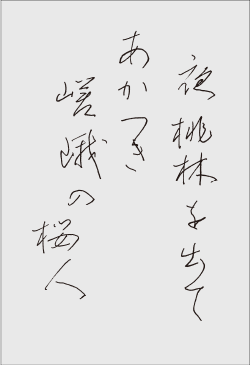 夜桃林を出て
あかつき
嵯峨の桜人